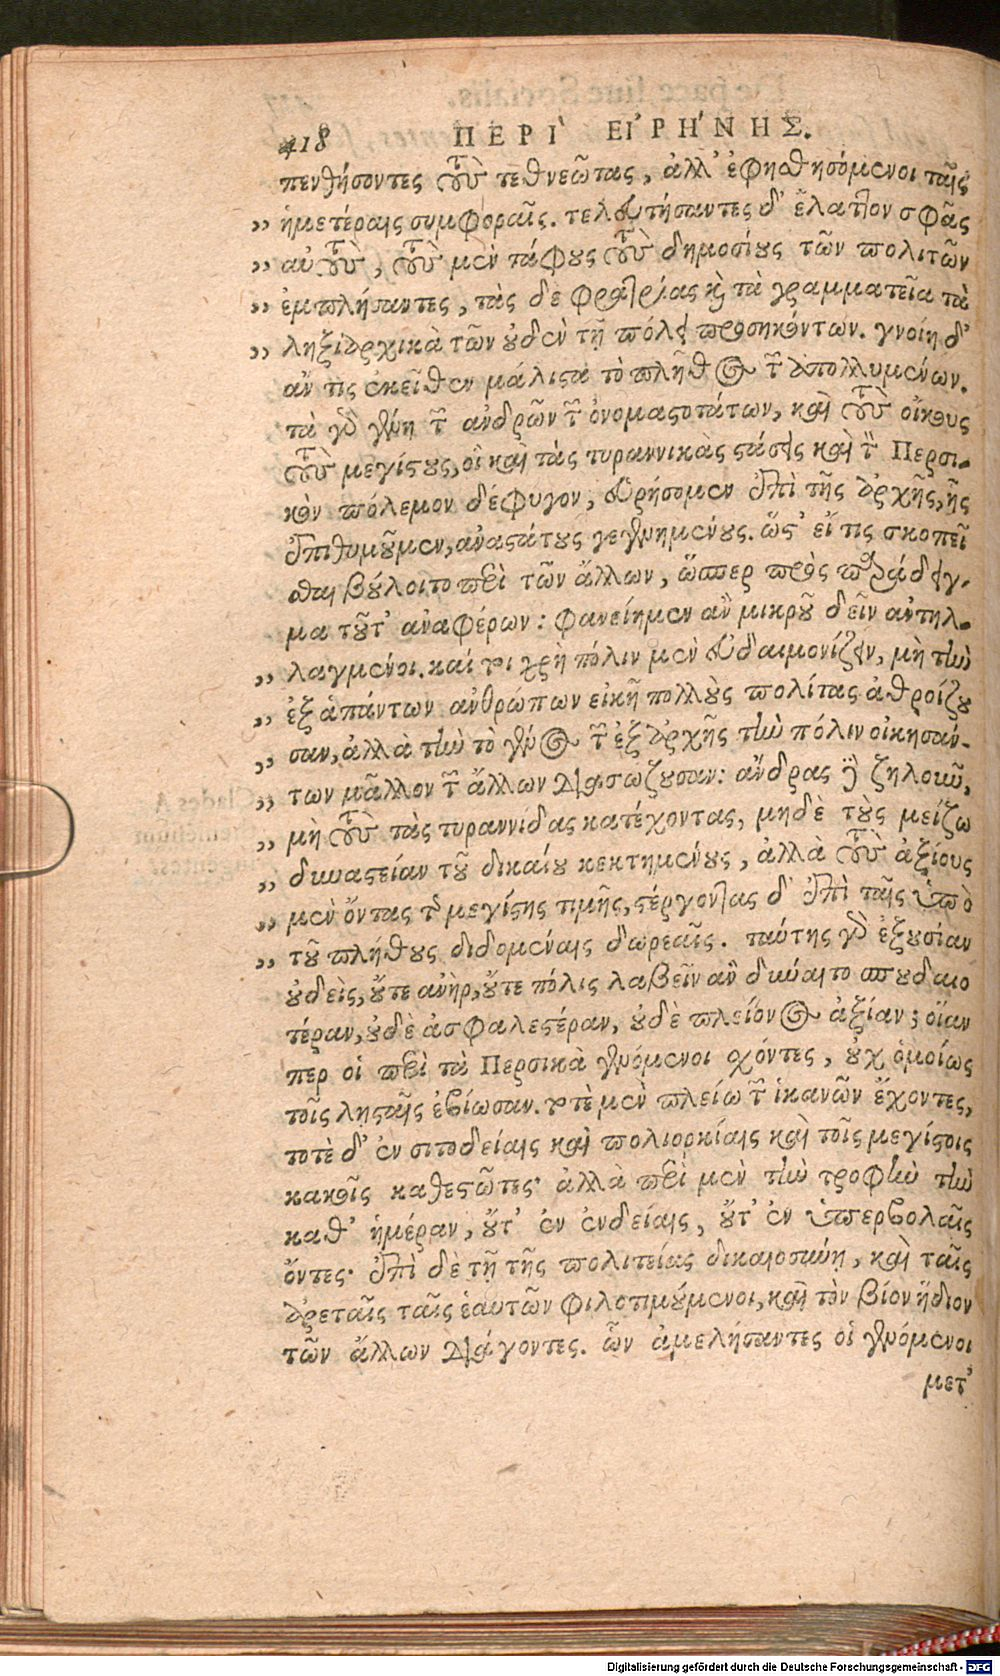 418 ΠΕΡΙ` ΕΙ᾿ΡΗ´ΝΗΣ.
πενθήσοντες τοὺς τεθνεῶτας, ἀλλ' ἐφησθησόμενοι ταῖς
„ ἡμετέραις συμφοραῖς. τελευτήσαντες δ' ἔλαττον σφᾶς
„ αὐτοὺς, τοὺς μὲν τάφους τοὺς δημοσίους τῶν πολιτῶν
„ ἐμπλήσαντες, τὰς δὲ φρατρίας καὶ τὰ γραμματεῖα τὰ
„ ληξιαρχικὰ τῶν οὐδὲν τῇ πόλει προσηκόντων. γνοίη δ'
ἄν τις ἐκεῖθεν μάλιστα τὸ πλῆθος τῶν ἀπολλυμένων.
τὰ γὰρ γένη τῶν ἀνδρῶν τῶν ὀνομαστοτάτων, καὶ τοὺς οἴκους
τοὺς μεγίστους, οἳ καὶ τὰς τυραννικὰς στάσεις καὶ τὸν Περσι-
κὸν πόλεμον διέφυγον, εὑρήσομεν ἐπὶ τῆς ἀρχῆς, ἧς
ἐπιθυμοῦμεν, ἀναστάτους γεγενημένους. ὥστ' εἴ τις σκοπεῖ
σθαι βούλοιτο περὶ τῶν ἄλλων, ὥσπερ πρὸς παράδειγ-
μα τοῦτ' ἀναφέρων: φανείημεν ἂν μικροῦ δεῖν ἀντηλ-
„ λαγμένοι. καίτοι χρὴ πόλιν μὲν εὐδαιμονίζειν, μὴ τὴν
„ ἐξ ἁπάντων ἀνθρώπων εἰκῆ πολλοὺς πολίτας ἀθροίζου
„ σαν, ἀλλὰ τὴν τὸ γένος τῶν ἐξ ἀρχῆς τὴν πόλιν οἰκησάν-
„ των μᾶλλον τῶν ἄλλων διασώζουσαν: ἄνδρας δὲ ζηλοῦν,
„ μὴ τοὺς τὰς τυραννίδας κατέχοντας, μηδὲ τοὺς μείζω
„ δυναστείαν τοῦ δικαίου κεκτημένους, ἀλλὰ τοὺς ἀξίους
„ μὲν ὄντας τῆς μεγίστης τιμῆς, στέργοντας δ' ἐπὶ ταῖς ὑπὸ
„ τοῦ πλήθους διδομέναις δωρεαῖς. ταύτης γὰρ ἐξουσίαν
οὐδεὶς, οὔτε ἀνὴρ, οὔτε πόλις λαβεῖν ἂν δύναιτο σπουδαιο
τέραν, οὐδὲ ἀσφαλεστέραν, οὐδὲ πλείονος ἀξίαν; οἵαν
περ οἱ περὶ τὰ Περσικὰ γενόμενοι σχόντες, οὐχ ὁμοίως
τοῖς λῃσταῖς ἐβίωσαν. τοτὲ μὲν πλείω τῶν ἱκανῶν ἔχοντες,
τοτὲ δ' ἐν σιτοδείαις καὶ πολιορκίαις καὶ τοῖς μεγίστοις
κακοῖς καθεστῶτες· ἀλλὰ περὶ μὲν τὴν τροφὴν τὴν
καθ' ἡμέραν, οὔτ' ἐν ἐνδείαις, οὔτ' ἐν ὑπερβολαῖς
ὄντες· ἐπὶ δὲ τῇ τῆς πολιτείας δικαιοσύνῃ, καὶ ταῖς
ἀρεταῖς ταῖς ἑαυτῶν φιλοτιμούμενοι, καὶ τὸν βίον ἥδιον
τῶν ἄλλων διάγοντες. ὧν ἀμελήσαντες οἱ γενόμενοι
μετ'
Digitalisierung gefördert durch die Deutsche Forschungsgemeinschaft - DFG